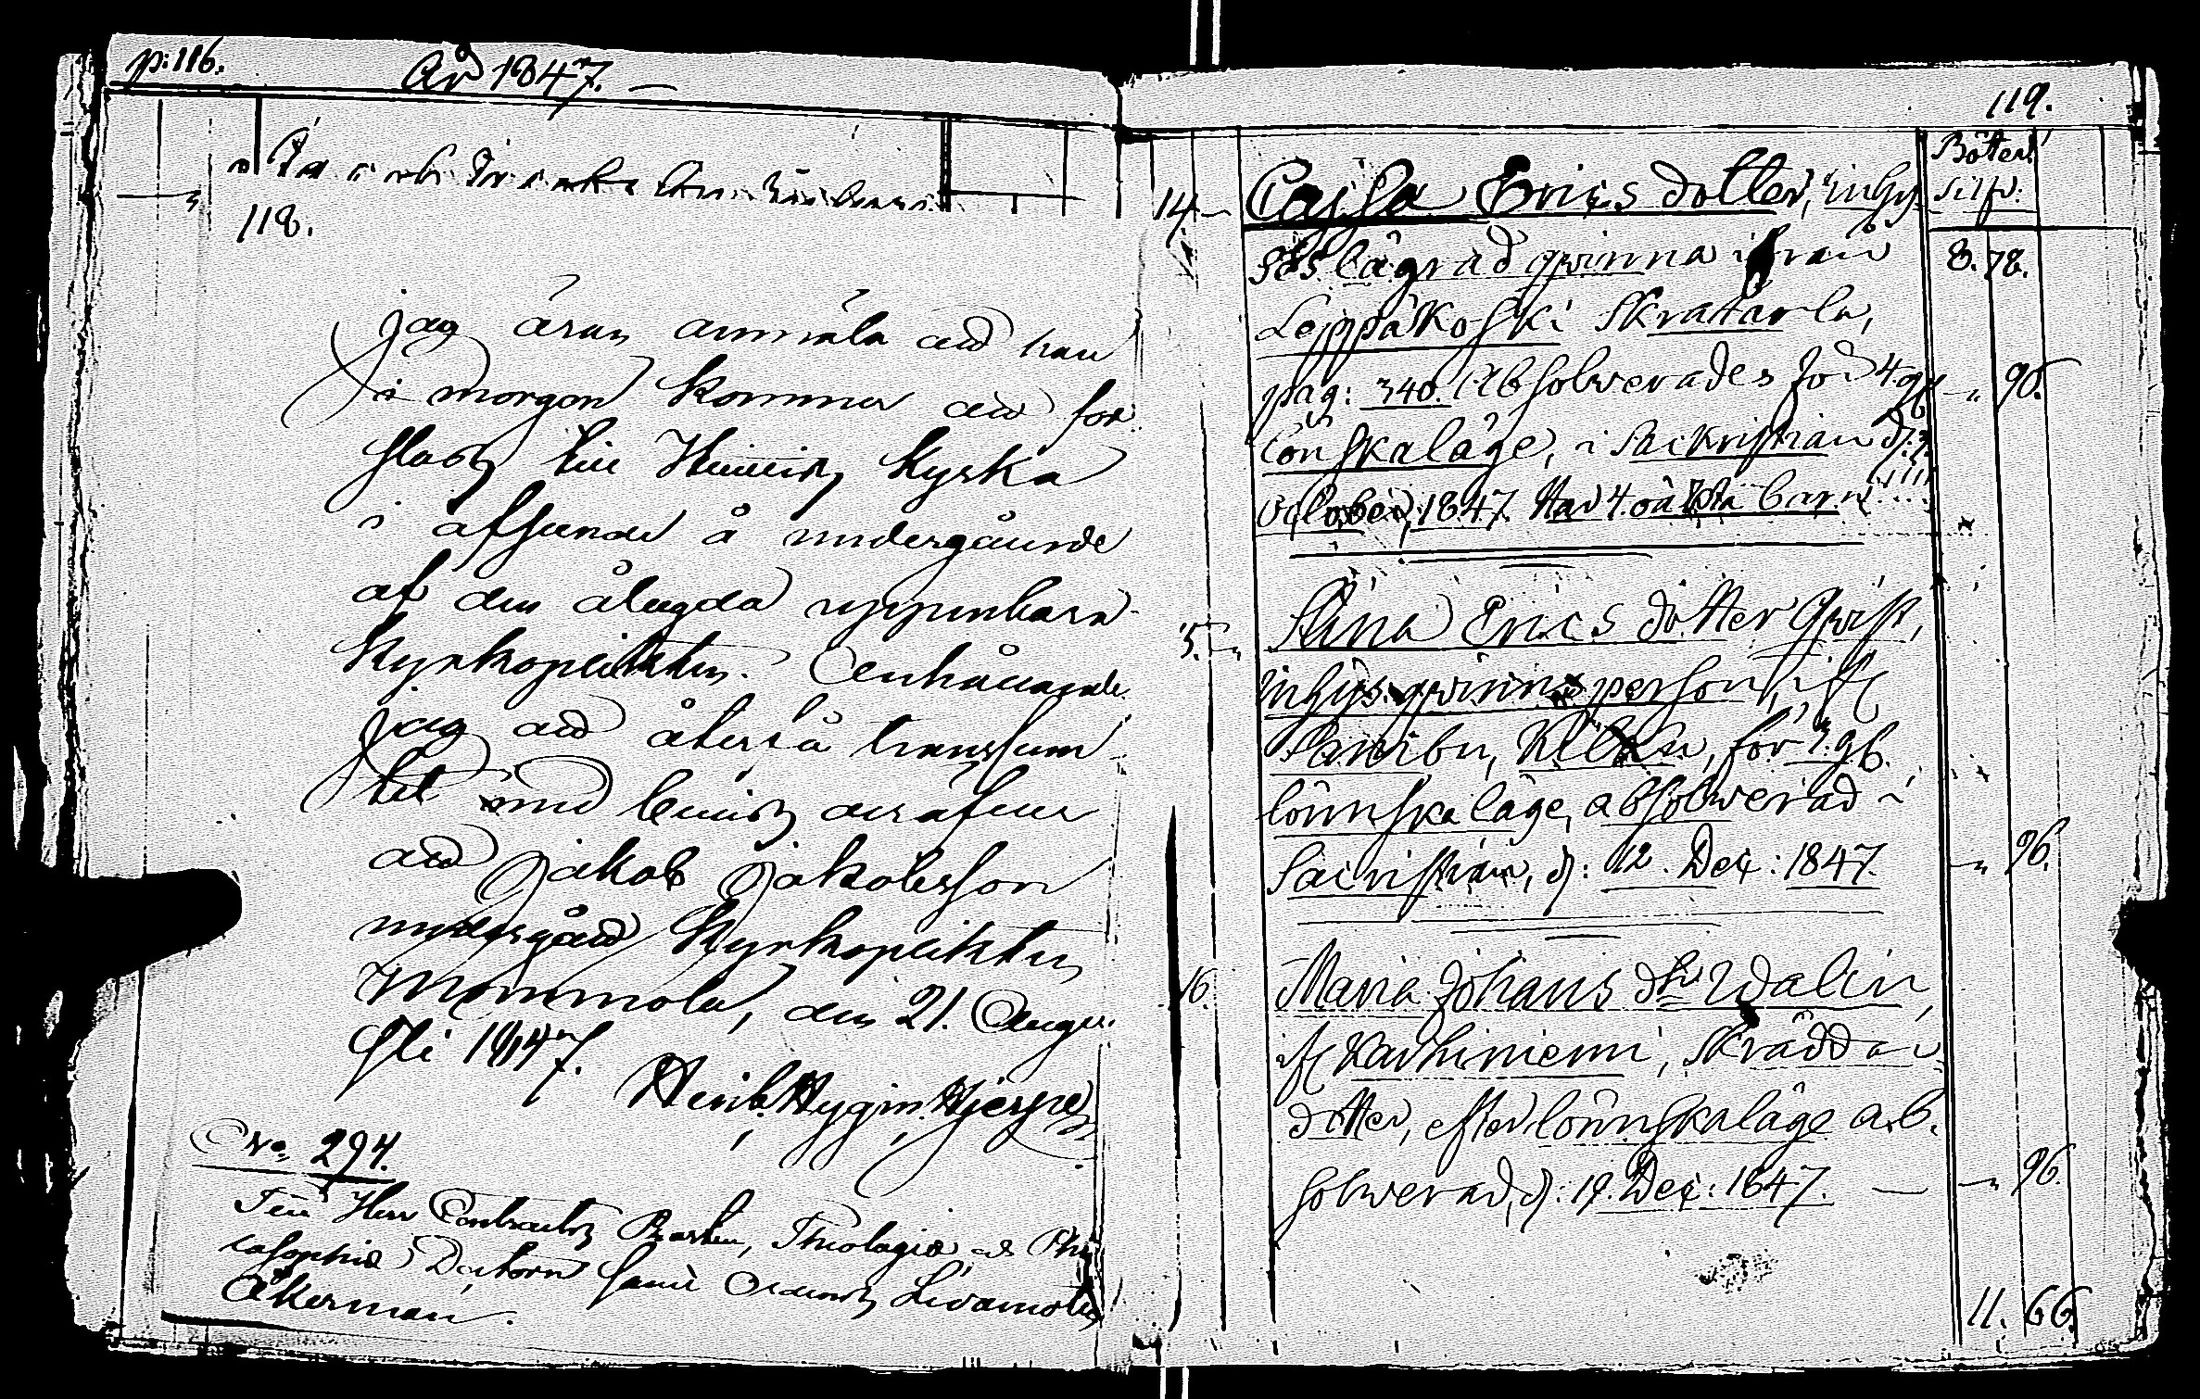 p: 116.
År 1847. —
118.
Jag äran anmäla att han
i morgon kommer att för
till Kyrka
i afseende å undergående
af den ålagda uppenbara
Kyrkoplikten. Anhållande
Jag att återfå transsum
tet med bevis derå
att Jakob Jakobsson
undergått Kyrkoplikten
Mommola, den 21. Augu
sti 1847.
Henr. Hygin. Hjerpe
No. 294.
Till Herr Contracts Prosten, Theologie och Phi
losophie Doctorn samt Ledamoten
Åkerman.
119.
Böter
Silfv:
14. Cajsa Erics dotter, inhy
ses lägrad qvinna ifrån
8. 78.
Leppäkoski Skratarla,
pag: 340. Absolverades för 4. gg
— " 90.
lönskaläge, i Sackristian d: 3.
October, 1847. Har 4 oäkta barn!!!!
15. Stina Erics dotter Qvist,
inhyses qvinnsperson, ifr
för 3. gg.
lönnskaläge, absolverad i
Sacristian, d: 12. Dec: 1847.
— " 96.
16. Maria Johans dtr Walin,
ifr Karhiniemi, Skräddar
dotter, efter lönnskaläge ab.
solverad, d: 19. Dec: 1847. —
— " 96.
11. 66.